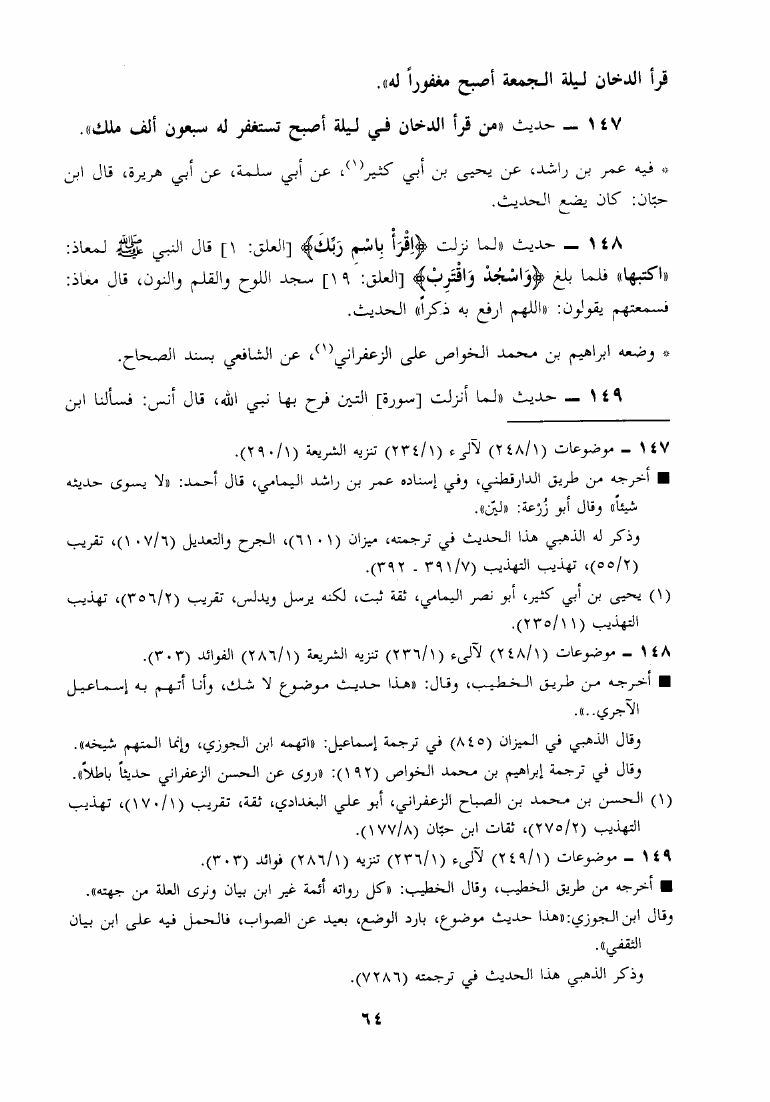 قرأ الدخان ليلة الجمعة أصبح مغفوراً له».
١٤٧ — حديث «من قرأ الدخان في ليلة أصبح تستغفر له سبعون ألف ملك».
* فيه عمر بن راشد، عن يحيى بن أبي كثير(١)، عن أبي سلمة، عن أبي هريرة، قال ابن
حبّان: كان يضع الحديث.
١٤٨ — حديث «لما نزلت ﴿اقْرَأْ بِاسْمِ رَبِّكَ﴾ [العلق: ١] قال النبي ﷺ لمعاذ:
«اكتبها» فلما بلغ ﴿وَاسْجُدْ وَاقْتَرِبْ﴾ [العلق: ١٩] سجد اللوح والقلم والنون، قال معاذ:
فسمعتهم يقولون: «اللهم ارفع به ذكراً» الحديث.
* وضعه ابراهيم بن محمد الخواص على الزعفراني(١)، عن الشافعي بسند الصحاح.
١٤٩ — حديث «لما أنزلت [سورة] التين فرح بها نبي الله، قال أنس: فسألنا ابن
١٤٧ - موضوعات (٢٤٨/١) لآلىء (٢٣٤/١) تنزيه الشريعة (٢٩٠/١).
■ أخرجه من طريق الدارقطني، وفي إسناده عمر بن راشد اليمامي، قال أحمد: «لا يسوى حديثه
شيئاً» وقال أبو زُرْعة: «ليّن».
وذكر له الذهبي هذا الحديث في ترجمته، ميزان (٦١٠١)، الجرح والتعديل (١٠٧/٦)، تقريب
(٥٥/٢)، تهذيب التهذيب (٣٩١/٧ - ٣٩٢).
(١) يحيى بن أبي كثير، أبو نصر اليمامي، ثقة ثبت، لكنه يرسل ويدلس، تقريب (٣٥٦/٢)، تهذيب
التهذيب (٢٣٥/١١).
١٤٨ - موضوعات (٢٤٨/١) لآلىء (٢٣٦/١) تنزيه الشريعة (٢٨٦/١) الفوائد (٣٠٣).
■ أخرجه من طريق الخطيب، وقال: «هذا حديث موضوع لا شك، وأنا أتهم به إسماعيل
الآجري..».
وقال الذهبي في الميزان (٨٤٥) في ترجمة إسماعيل: «اتهمه ابن الجوزي، وإنما المتهم شيخه».
وقال في ترجمة إبراهيم بن محمد الخواص (١٩٢): «روى عن الحسن الزعفراني حديثاً باطلاً».
(١) الحسن بن محمد بن الصباح الزعفراني، أبو علي البغدادي، ثقة، تقريب (١٧٠/١)، تهذيب
التهذيب (٢٧٥/٢)، ثقات ابن حبّان (١٧٧/٨).
١٤٩ - موضوعات (٢٤٩/١) لآلىء (٢٣٦/١) تنزيه (٢٨٦/١) فوائد (٣٠٣).
■ أخرجه من طريق الخطيب، وقال الخطيب: «كل رواته أئمة غير ابن بيان ونرى العلة من جهته».
وقال ابن الجوزي:«هذا حديث موضوع، بارد الوضع، بعيد عن الصواب، فالحمل فيه على ابن بيان
الثقفي».
وذكر الذهبي هذا الحديث في ترجمته (٧٢٨٦).
٦٤